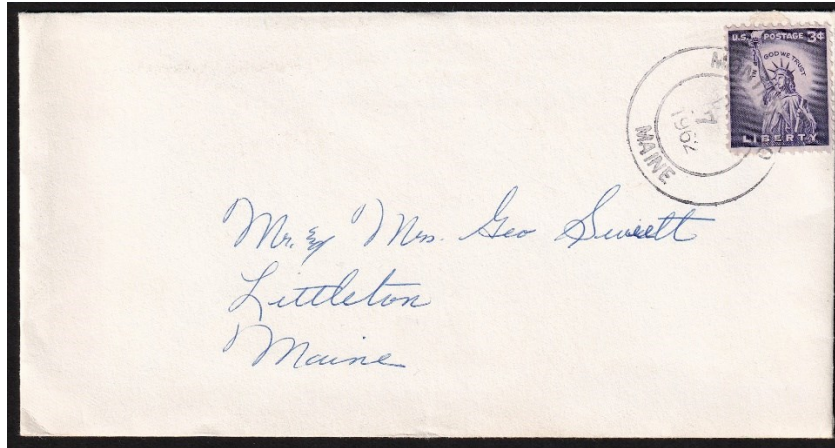 U.S. POSTAGE 3¢
IN GOD WE TRUST
LIBERTY
MAINE
1962
Mr. & Mrs. Geo Sweett
Littleton
Maine